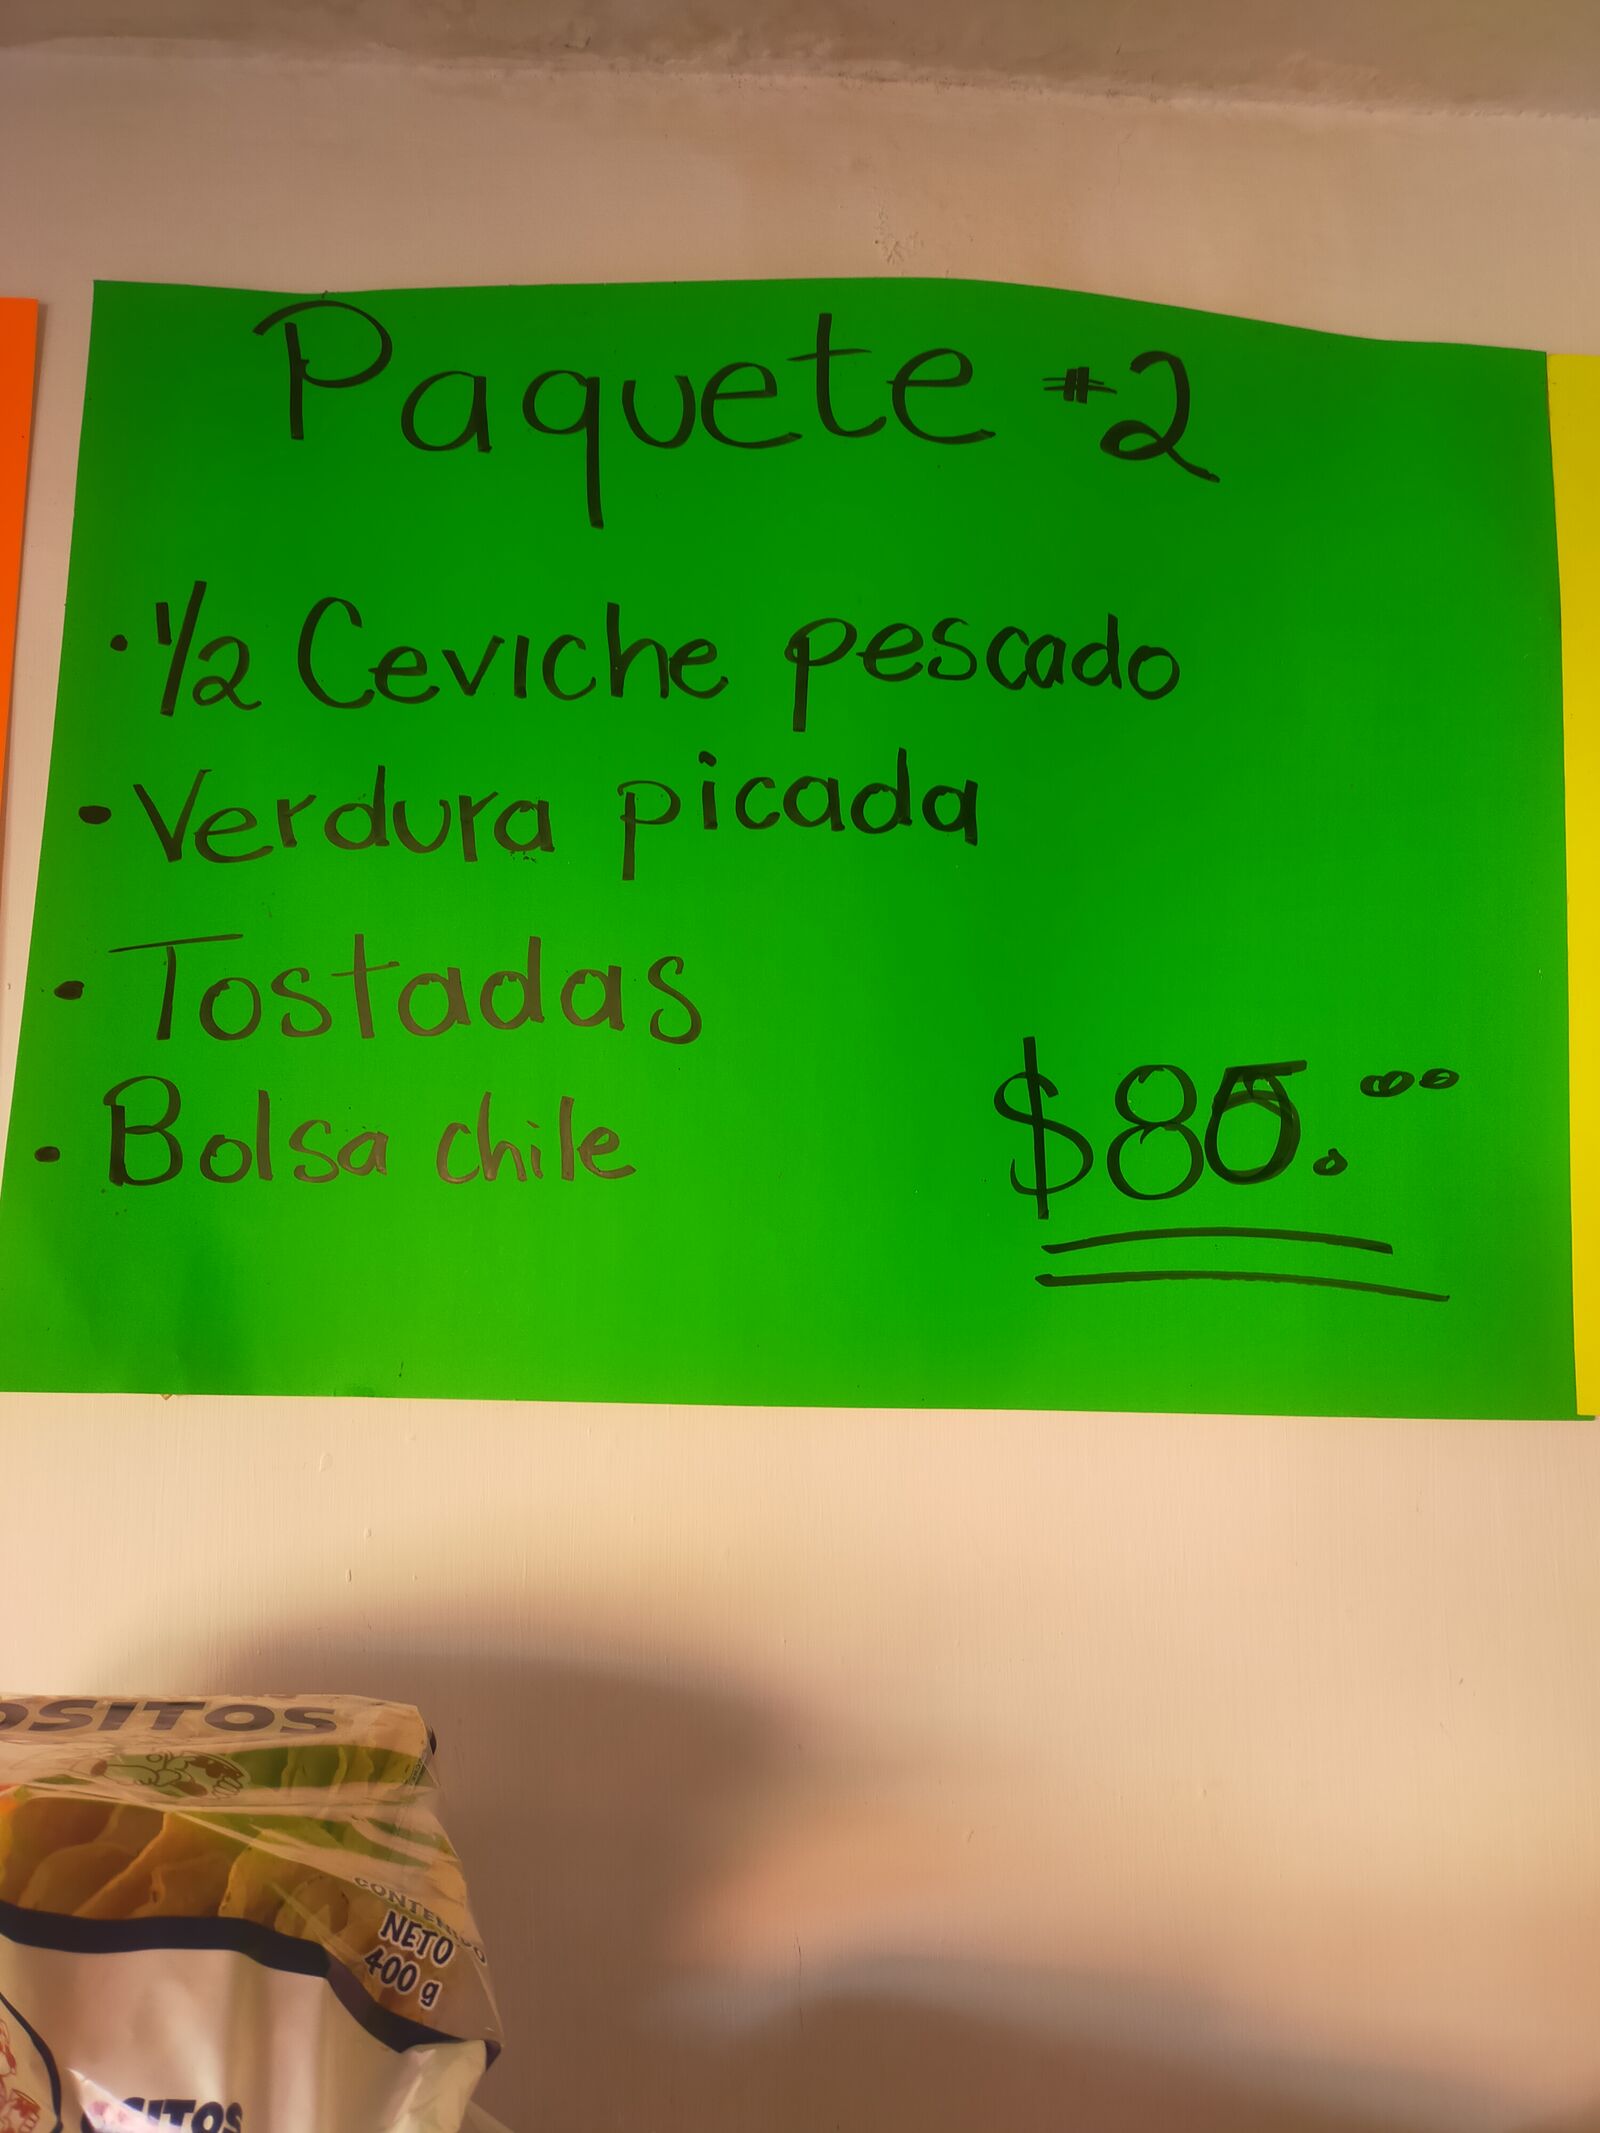 Paquete #2
• 1/2 Ceviche pescado
• Verdura picada
• Tostadas
• Bolsa chile
$80.00
OSITOS
CONTENIDO
NETO
400 g